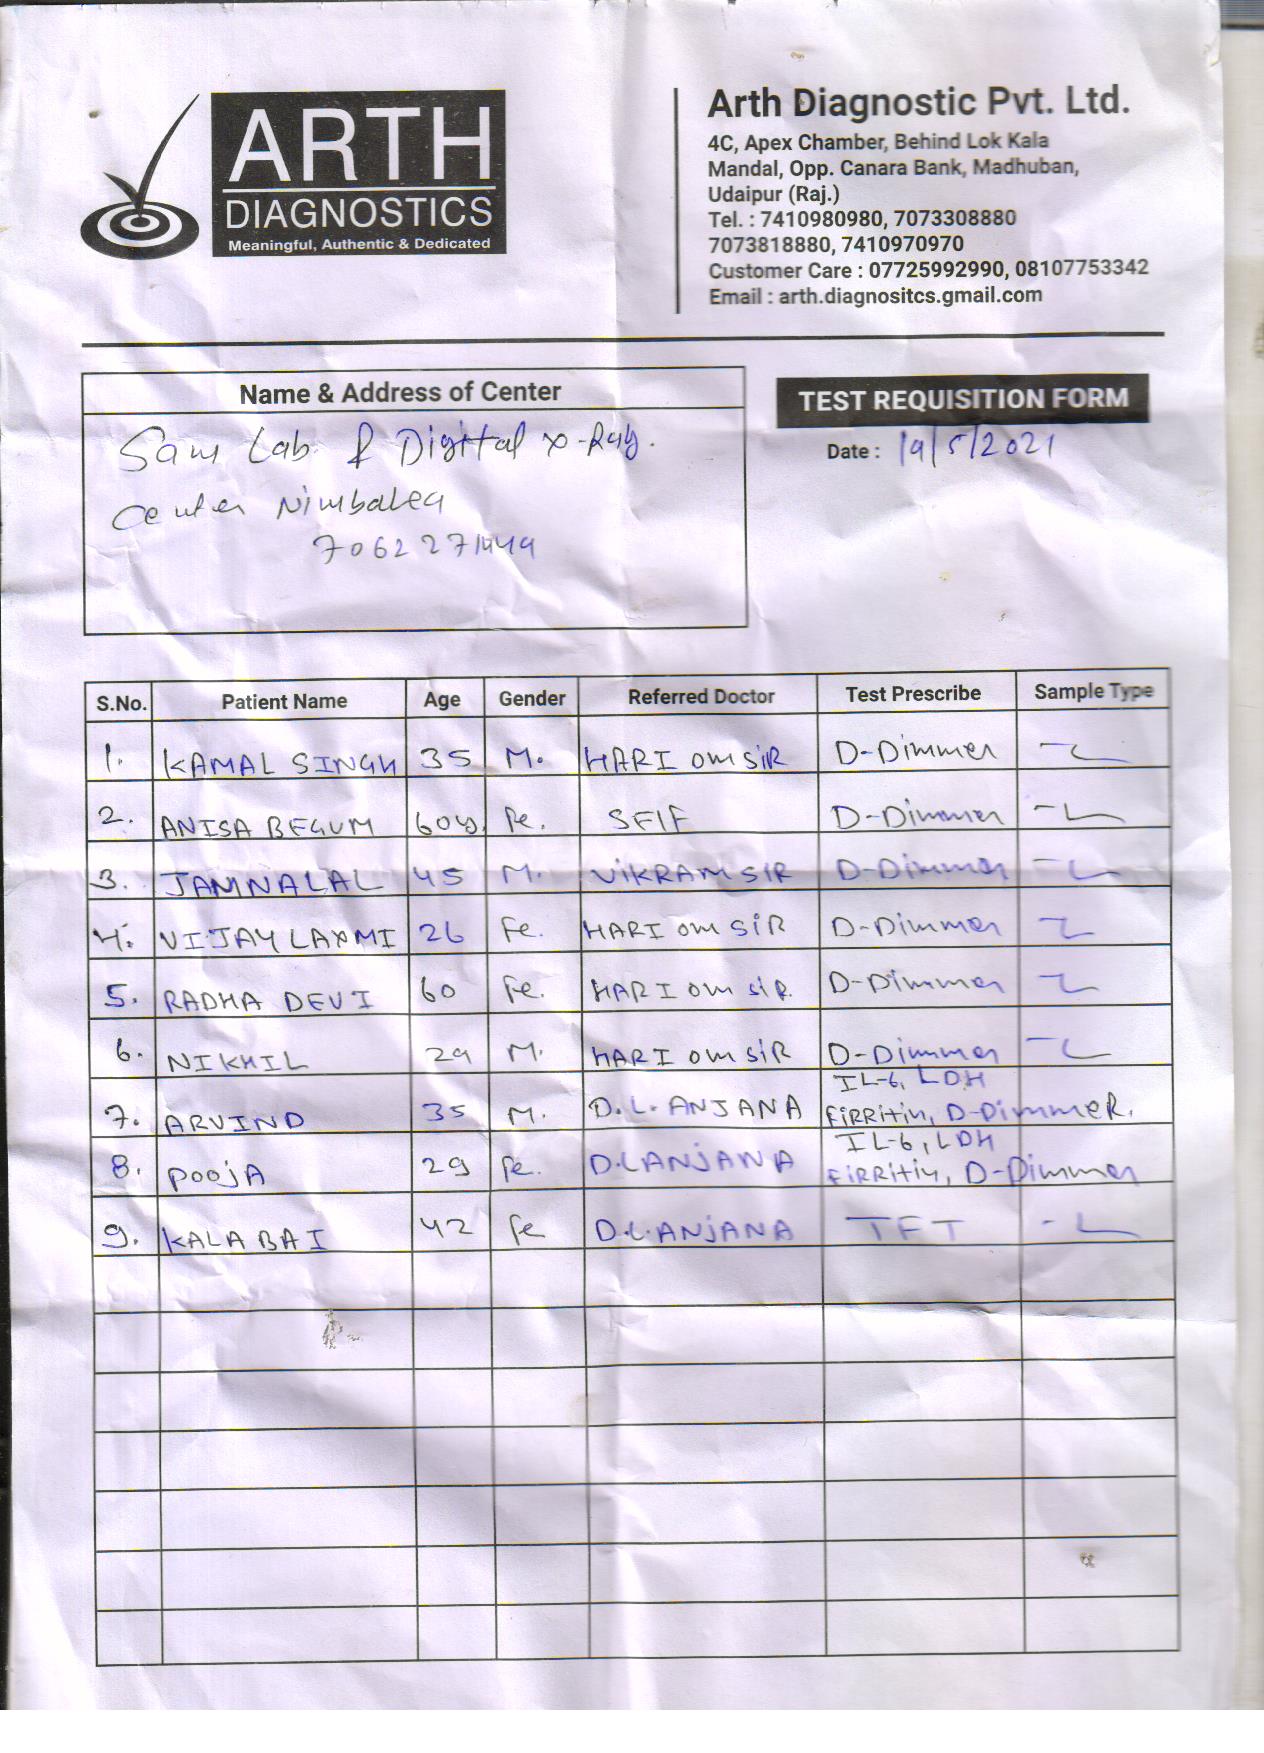 ARTH
DIAGNOSTICS
Meaningful, Authentic & Dedicated
Arth Diagnostic Pvt. Ltd.
4C, Apex Chamber, Behind Lok Kala
Mandal, Opp. Canara Bank, Madhuban,
Udaipur (Raj.)
Tel. : 7410980980, 7073308880
7073818880, 7410970970
Customer Care : 07725992990, 08107753342
Email : arth.diagnositcs.gmail.com
Name & Address of Center
Sam Lab & Digital x-Ray.
Center Nimbahea
7062271449
TEST REQUISITION FORM
Date : 19/5/2021
S.No. Patient Name Age Gender Referred Doctor Test Prescribe Sample Type
1. KAMAL SINGH 35 M. HARI OM SIR D-Dimmer
2. ANISA BEGUM 60y. Fe. SELF D-Dimmer
3. JAMNALAL 45 M. VIKRAM SIR D-Dimmer
4. VIJAY LAXMI 26 Fe. HARI OM SIR D-Dimmer
5. RADHA DEVI 60 Fe. HARI OM SIR. D-Dimmer
6. NIKHIL 29 M. HARI OM SIR D-Dimmer
7. ARVIND 35 M. D.L. ANJANA IL-6, LDH
FIRRITIN, D-DIMMER.
8. POOJA 29 Fe. D.L ANJANA IL-6, LDH
FIRRITIN, D-Dimmer
9. KALA BAI 42 Fe D.L. ANJANA TFT